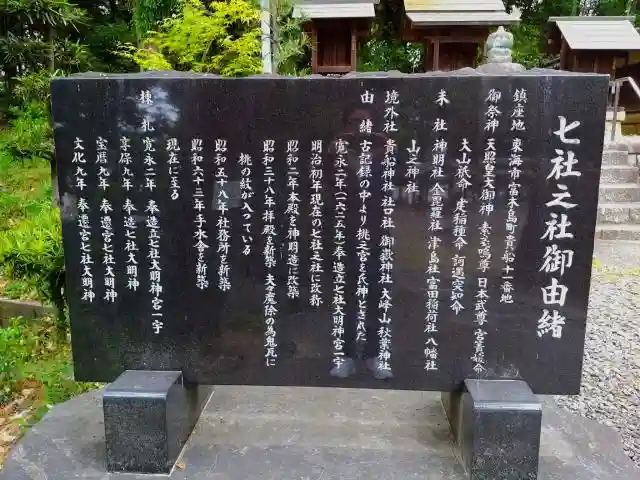 七社之社御由緒
鎮座地 東海市富木島町貴船十一番地
御祭神 天照皇大御神 素盞嗚尊 日本武尊 宮簀媛命
大山祇命 倉稲種命 訶遇突知命
末社 神明社 金毘羅社 津島社 富田稲荷社 八幡社
山之神社
境外社 貴船神社 社口社 御嶽神社 大峰山 秋葉神社
由緒 古記録の中より桃之宮を氏神とされた
寛永二年(一六二五年)奉造立七社大明神宮一宇
明治初年現在の七社之社に改称
昭和二年本殿を神明造に改築
昭和三十八年拝殿を新築 夫々魔除の為鬼瓦に
桃の紋が入っている
昭和五十八年社務所を新築
昭和六十三年手水舎を新築
現在に至る
棟札 寛永二年 奉造立七社大明神宮一宇
享保九年 奉遷宮七社大明神
宝暦九年 奉遷宮七社大明神
文化九年 奉遷宮七社大明神